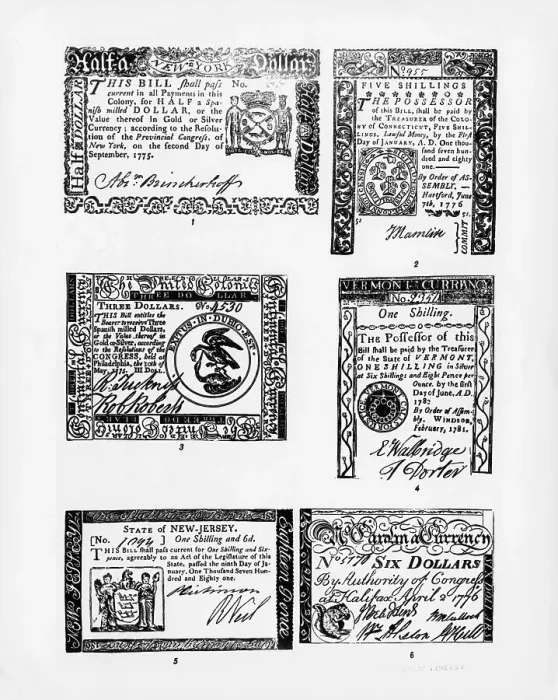 Half a NEW-YORK Dollar
THIS BILL shall pass No.
current in all Payments in this
Colony, for HALF a Spa-
nish milled DOLLAR, or the
Value thereof in Gold or Silver
Currency; according to the Resolu-
tion of the Provincial Congress, of
New York, on the second Day of
September, 1775.
Half DOLLAR
Abm Brinckerhoff
1
No 955
FIVE SHILLINGS
THE POSSESSOR
of this Bill, shall be paid by
the TREASURER of the COLO-
NY of CONNECTICUT, FIVE SHIL-
LINGS, Lawful Money, by the First
Day of JANUARY, A. D. One thou-
sand seven hun-
dred and eighty
one.
By Order of AS-
SEMBLY,
Hartford, June
7th, 1776
5s 5s.
COMMIT
2
The United Colonies
THREE DOLLAR
THREE DOLLARS. No. 4530
THIS Bill entitles the
Bearer to receive Three
Spanish milled Dollars,
or the Value thereof in
Gold or Silver, according
to the Resolutions of the
CONGRESS, held at
Philadelphia, the 10th of
May, 1775. III DOLL.
EXITUS IN DUBIO EST
Continental Currency
3
VERMONT CURRENCY
No.
One Shilling.
THE Possessor of this
Bill shall be paid by the Treasurer
of the State of VERMONT,
ONE SHILLING in Silver
at Six Shillings and Eight Pence per
Ounce, by the first
Day of June, A.D.
1782
By Order of Assem-
bly. WINDSOR,
February, 1781.
E Walbridge
T Porter
4
STATE of NEW-JERSEY.
[No. ] One Shilling and 6d.
THIS BILL shall pass current for One Shilling and Six-
pence, agreeably to an Act of the Legislature of this
State, passed the ninth Day of Ja-
nuary, One Thousand Seven Hun-
dred and Eighty one.
NEW JERSEY
Eighteen Pence
R Neil
5
N Carolina Currency
No SIX DOLLARS
By Authority of Congress
at Halifax April 2 1776
6